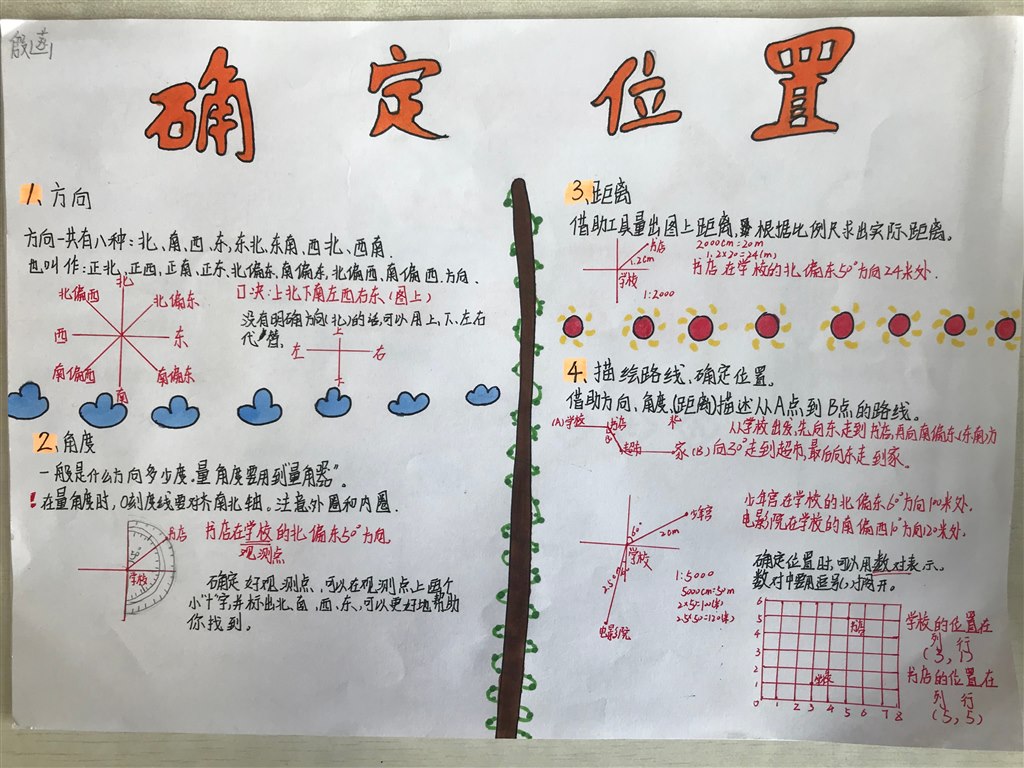 确定位置
1、方向
方向一共有八种:北、南、西、东、东北、东南、西北、西南.
也叫作:正北、正西、正南、正东、北偏东、南偏东、北偏西、南偏西.方向.
口决:上北下南左西右东(图上)
没有明确方向(北)的话,可以用上、下、左右
代 值。
北
北偏西
北偏东
西
东
南偏西
南偏东
南
上
左
右
下
2、角度
一般是什么方向多少度,量角度要用到“量角器”。
!在量角度时,0刻度线要对齐南北轴。注意外圈和内圈.
书店
50°
学校
书店在学校的北偏东50°方向,
观测点
确定好观测点、可以在观测点上画个
小“十”字,并标出北、南、西、东、可以更好地帮助
你找到.
3、距离
借助工具量出图上距离,根据比例尺求出实际距离。
书店
1.2cm
学校
1:2000
2000cm=20m
1.2×20=24(m)
书店在学校的北偏东50°方向24米处.
4、描绘路线、确定位置。
借助方向、角度、(距离)描述从A点到B点的路线。
(A)学校
书店
超市
北
家(B)
从学校出发,先向东走到书店,再向南偏东(东南)方
向30°走到超市,最后向东走到家。
少年宫
60°
20m
学校
电影院
1:5000
5000cm=50m
少年宫在学校的北偏东60°方向100米处,
电影院在学校的南偏西10°方向120米处.
确定位置时,可以用数对表示、
数对中要用逗号,对隔开.
6
5
4
3
2
1
0 1 2 3 4 5 6 7 8
书店
学校
学校的位置在
列 行
(3, 1)
书店的位置在
列 行
(5, 5)